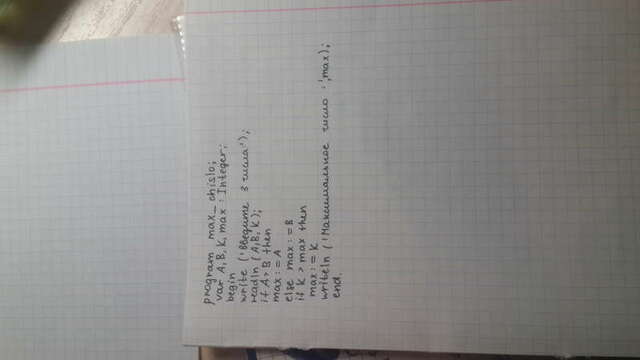 program max_chislo;
var A, B, K, max : Integer;
begin
write ('Введите 3 числа');
readln (A, B, K);
if A > B then
max := A
else max := B
if K > max then
max := K
writeln ('Максимальное число :', max);
end.